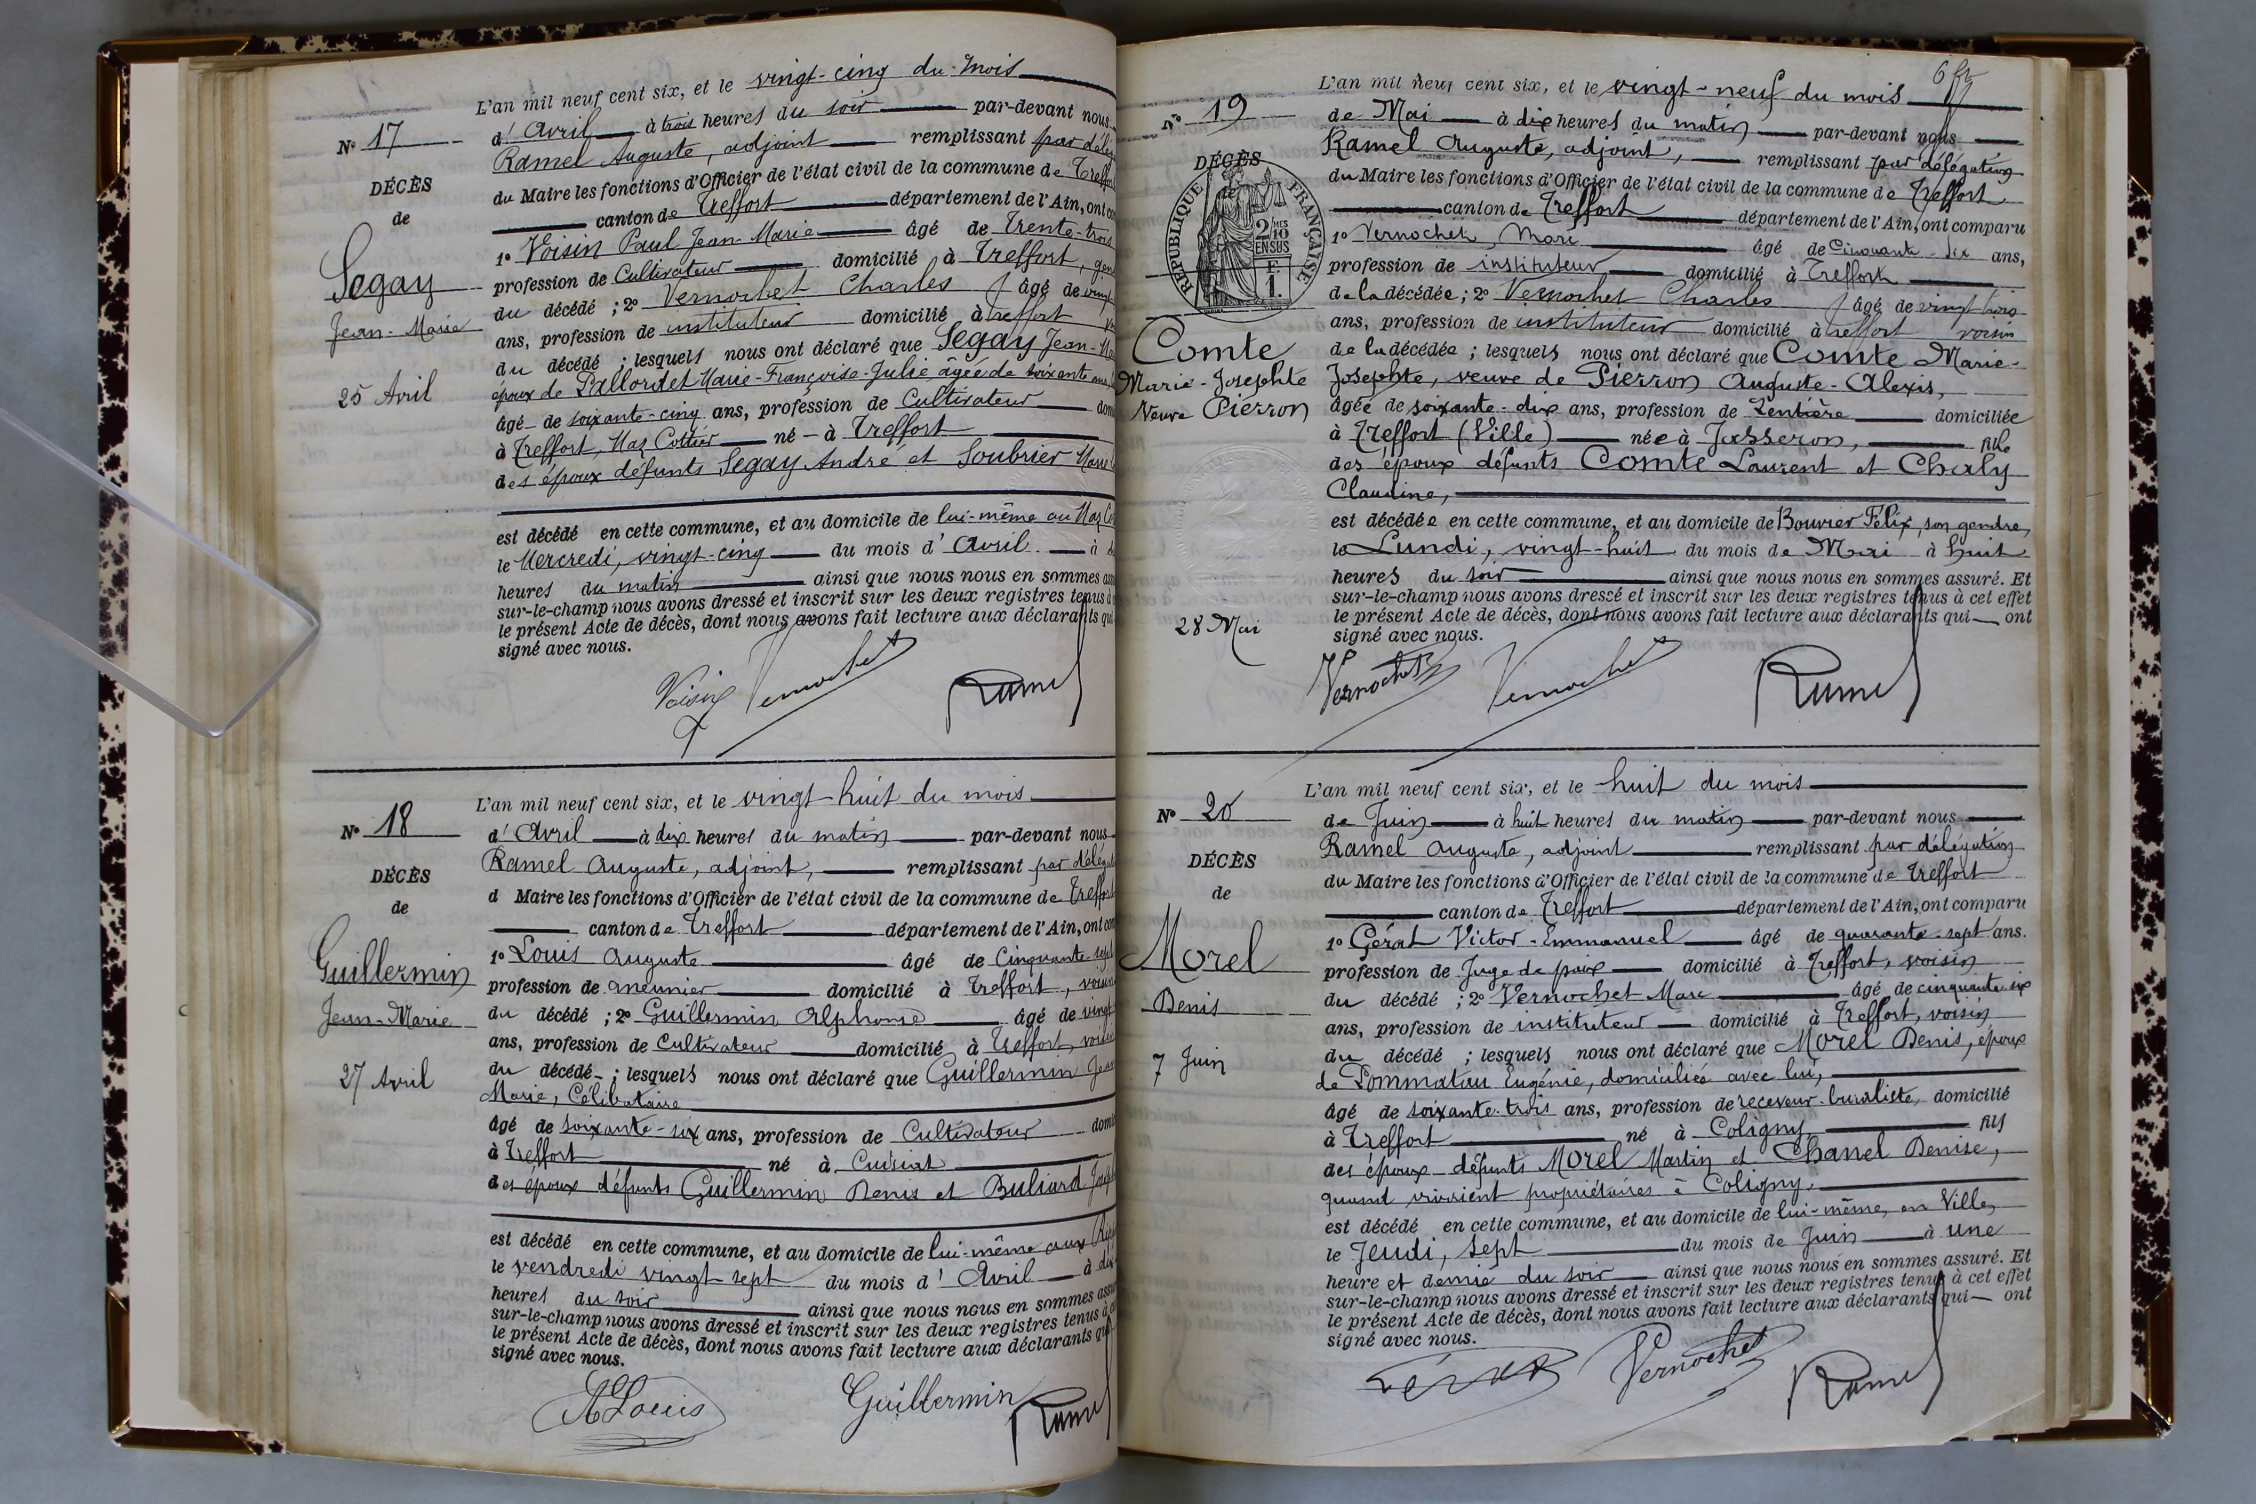 L'an mil neuf cent six, et le vingt-cinq du mois
N° 17
d'Avril à trois heures du soir par-devant nous
Ramel Auguste, adjoint remplissant par délég
DÉCÈS
du Maire les fonctions d'Officier de l'état civil de la commune de Treffort
de
canton de Treffort département de l'Ain, ont co
Segay
1° Voisin Paul Jean-Marie âgé de Trente-trois
profession de Cultivateur domicilié à Treffort, gen
Jean-Marie
du décédé ; 2° Vernochet Charles âgé de vingt
ans, profession de instituteur domicilié à Treffort
du décédé ; lesquels nous ont déclaré que Segay Jean-Ma
25 Avril
époux de Pallordet Marie-Françoise-Julie, âgée de soixante ans,
âgé de soixante-cinq ans, profession de Cultivateur dom
à Treffort, Mas Cottier né à Treffort
des époux défunts Segay André et Soubrier Marie
est décédé en cette commune, et au domicile de lui-même au Mas Co
le Mercredi, vingt-cinq du mois d'Avril à
heures du matin ainsi que nous nous en sommes ass
sur-le-champ nous avons dressé et inscrit sur les deux registres tenus à
le présent Acte de décès, dont nous avons fait lecture aux déclarants qui
signé avec nous.
Voisin Vernochet Ramel
L'an mil neuf cent six, et le vingt-huit du mois
N° 18
d'Avril à dix heures du matin par-devant nous
Ramel Auguste, adjoint, remplissant par déléga
DÉCÈS
d Maire les fonctions d'Officier de l'état civil de la commune de Treffort
de
canton de Treffort département de l'Ain, ont com
Guillermin
1° Louis Auguste âgé de Cinquante-sept
profession de meunier domicilié à Treffort, voisin
Jean-Marie
du décédé ; 2° Guillermin Alphonse âgé de vingt
ans, profession de Cultivateur domicilié à Treffort, voisin
27 Avril
du décédé ; lesquels nous ont déclaré que Guillermin Jean
Marie, Célibataire
âgé de soixante-six ans, profession de Cultivateur domi
à Treffort né à Cuisiat
des époux défunts Guillermin Denis et Buliard Josep
est décédé en cette commune, et au domicile de lui-même aux
le vendredi vingt sept du mois d'Avril à dix
heures du soir ainsi que nous nous en sommes assu
sur-le-champ nous avons dressé et inscrit sur les deux registres tenus à c
le présent Acte de décès, dont nous avons fait lecture aux déclarants qui
signé avec nous.
A Louis Guillermin Ramel
L'an mil neuf cent six, et le vingt-neuf du mois
N° 19
de Mai à dix heures du matin par-devant nous
Ramel Auguste, adjoint, remplissant par délégation
DÉCÈS
du Maire les fonctions d'Officier de l'état civil de la commune de Treffort
RÉPUBLIQUE FRANÇAISE
2/10MES
EN SUS
F.
1.
canton de Treffort département de l'Ain, ont comparu
1° Vernochet, Marc âgé de Cinquante-six ans,
profession de instituteur domicilié à Treffort
de la décédée ; 2° Vernochet Charles âgé de vingt-trois
ans, profession de instituteur domicilié à Treffort voisin
Comte
de la décédée ; lesquels nous ont déclaré que Comte Marie-
Marie-Josephte
Josephte, veuve de Pierron Auguste-Alexis,
Veuve Pierron
âgée de soixante-dix ans, profession de Rentière domiciliée
à Treffort (Ville) née à Jasseron, fille
des époux défunts Comte Laurent et Chaly
Claudine,
est décédée en cette commune, et au domicile de Bouvier Félix, son gendre,
le Lundi, vingt-huit du mois de Mai à huit
heures du soir ainsi que nous nous en sommes assuré. Et
sur-le-champ nous avons dressé et inscrit sur les deux registres tenus à cet effet
28 Mai
le présent Acte de décès, dont nous avons fait lecture aux déclarants qui ont
signé avec nous.
Vernochet Vernochet Ramel
L'an mil neuf cent six, et le huit du mois
N° 20
de Juin à huit heures du matin par-devant nous
Ramel Auguste, adjoint remplissant par délégation
DÉCÈS
du Maire les fonctions d'Officier de l'état civil de la commune de Treffort
de
canton de Treffort département de l'Ain, ont comparu
Morel
1° Gérat Victor-Emmanuel âgé de quarante-sept ans.
profession de Juge de paix domicilié à Treffort, voisin
Denis
du décédé ; 2° Vernochet Marc âgé de cinquante-six
ans, profession de instituteur domicilié à Treffort, voisin
7 Juin
du décédé ; lesquels nous ont déclaré que Morel Denis, époux
de Pommatau Eugénie, domiciliée avec lui,
âgé de soixante-trois ans, profession de receveur-buraliste, domicilié
à Treffort né à Coligny, fils
des époux défunts Morel Martin et Chanel Denise,
quand vivaient propriétaires à Coligny,
est décédé en cette commune, et au domicile de lui-même, en Ville,
le Jeudi, sept du mois de Juin à une
heure et demie du soir ainsi que nous nous en sommes assuré. Et
sur-le-champ nous avons dressé et inscrit sur les deux registres tenus à cet effet
le présent Acte de décès, dont nous avons fait lecture aux déclarants qui ont
signé avec nous.
Gérat Vernochet Ramel